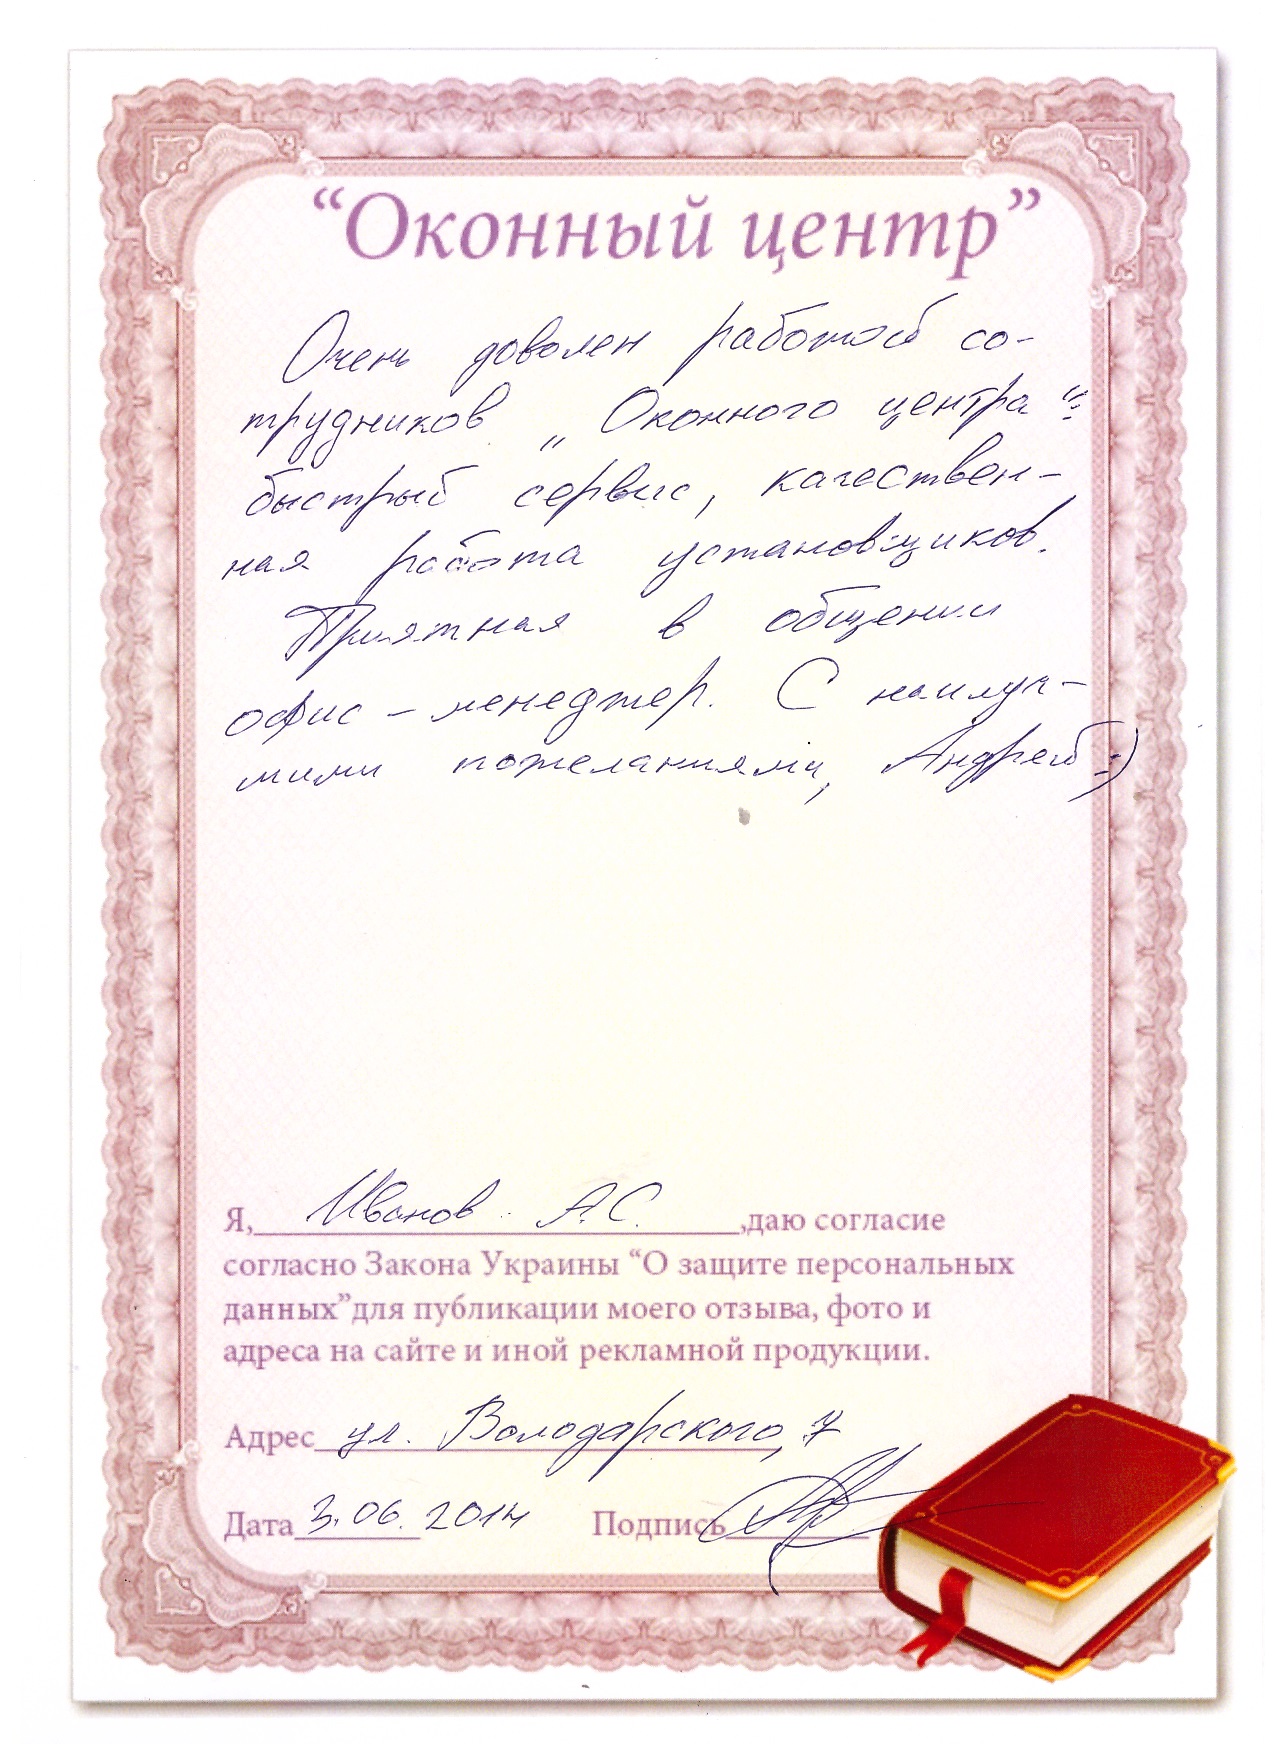 “Оконный центр”
Очень доволен работой со-
трудников „Оконного центра“:
быстрый сервис, качествен-
ная работа установщиков.
Приятная в общении
офис-менеджер. С наилуч-
шими пожеланиями, Андрей :)
Я, Иванов А.С. ,даю согласие
согласно Закона Украины “О защите персональных
данных”для публикации моего отзыва, фото и
адреса на сайте и иной рекламной продукции.
Адрес ул. Володарского, 7
Дата 3.06.2014 Подпись